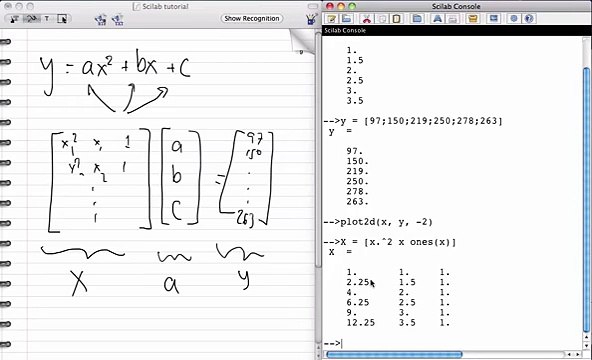 Scilab tutorial
Show Recognition
y = ax² + bx + c
x₁² x₁ 1 a 97
x₂² x₂ 1 b = 150
. . .
. c 263
X a y
Scilab Console
Scilab Console
1.
1.5
2.
2.5
3.
3.5
-->y = [97;150;219;250;278;263]
y =
97.
150.
219.
250.
278.
263.
-->plot2d(x, y, -2)
-->X = [x.^2 x ones(x)]
X =
1. 1. 1.
2.25 1.5 1.
4. 2. 1.
6.25 2.5 1.
9. 3. 1.
12.25 3.5 1.
-->